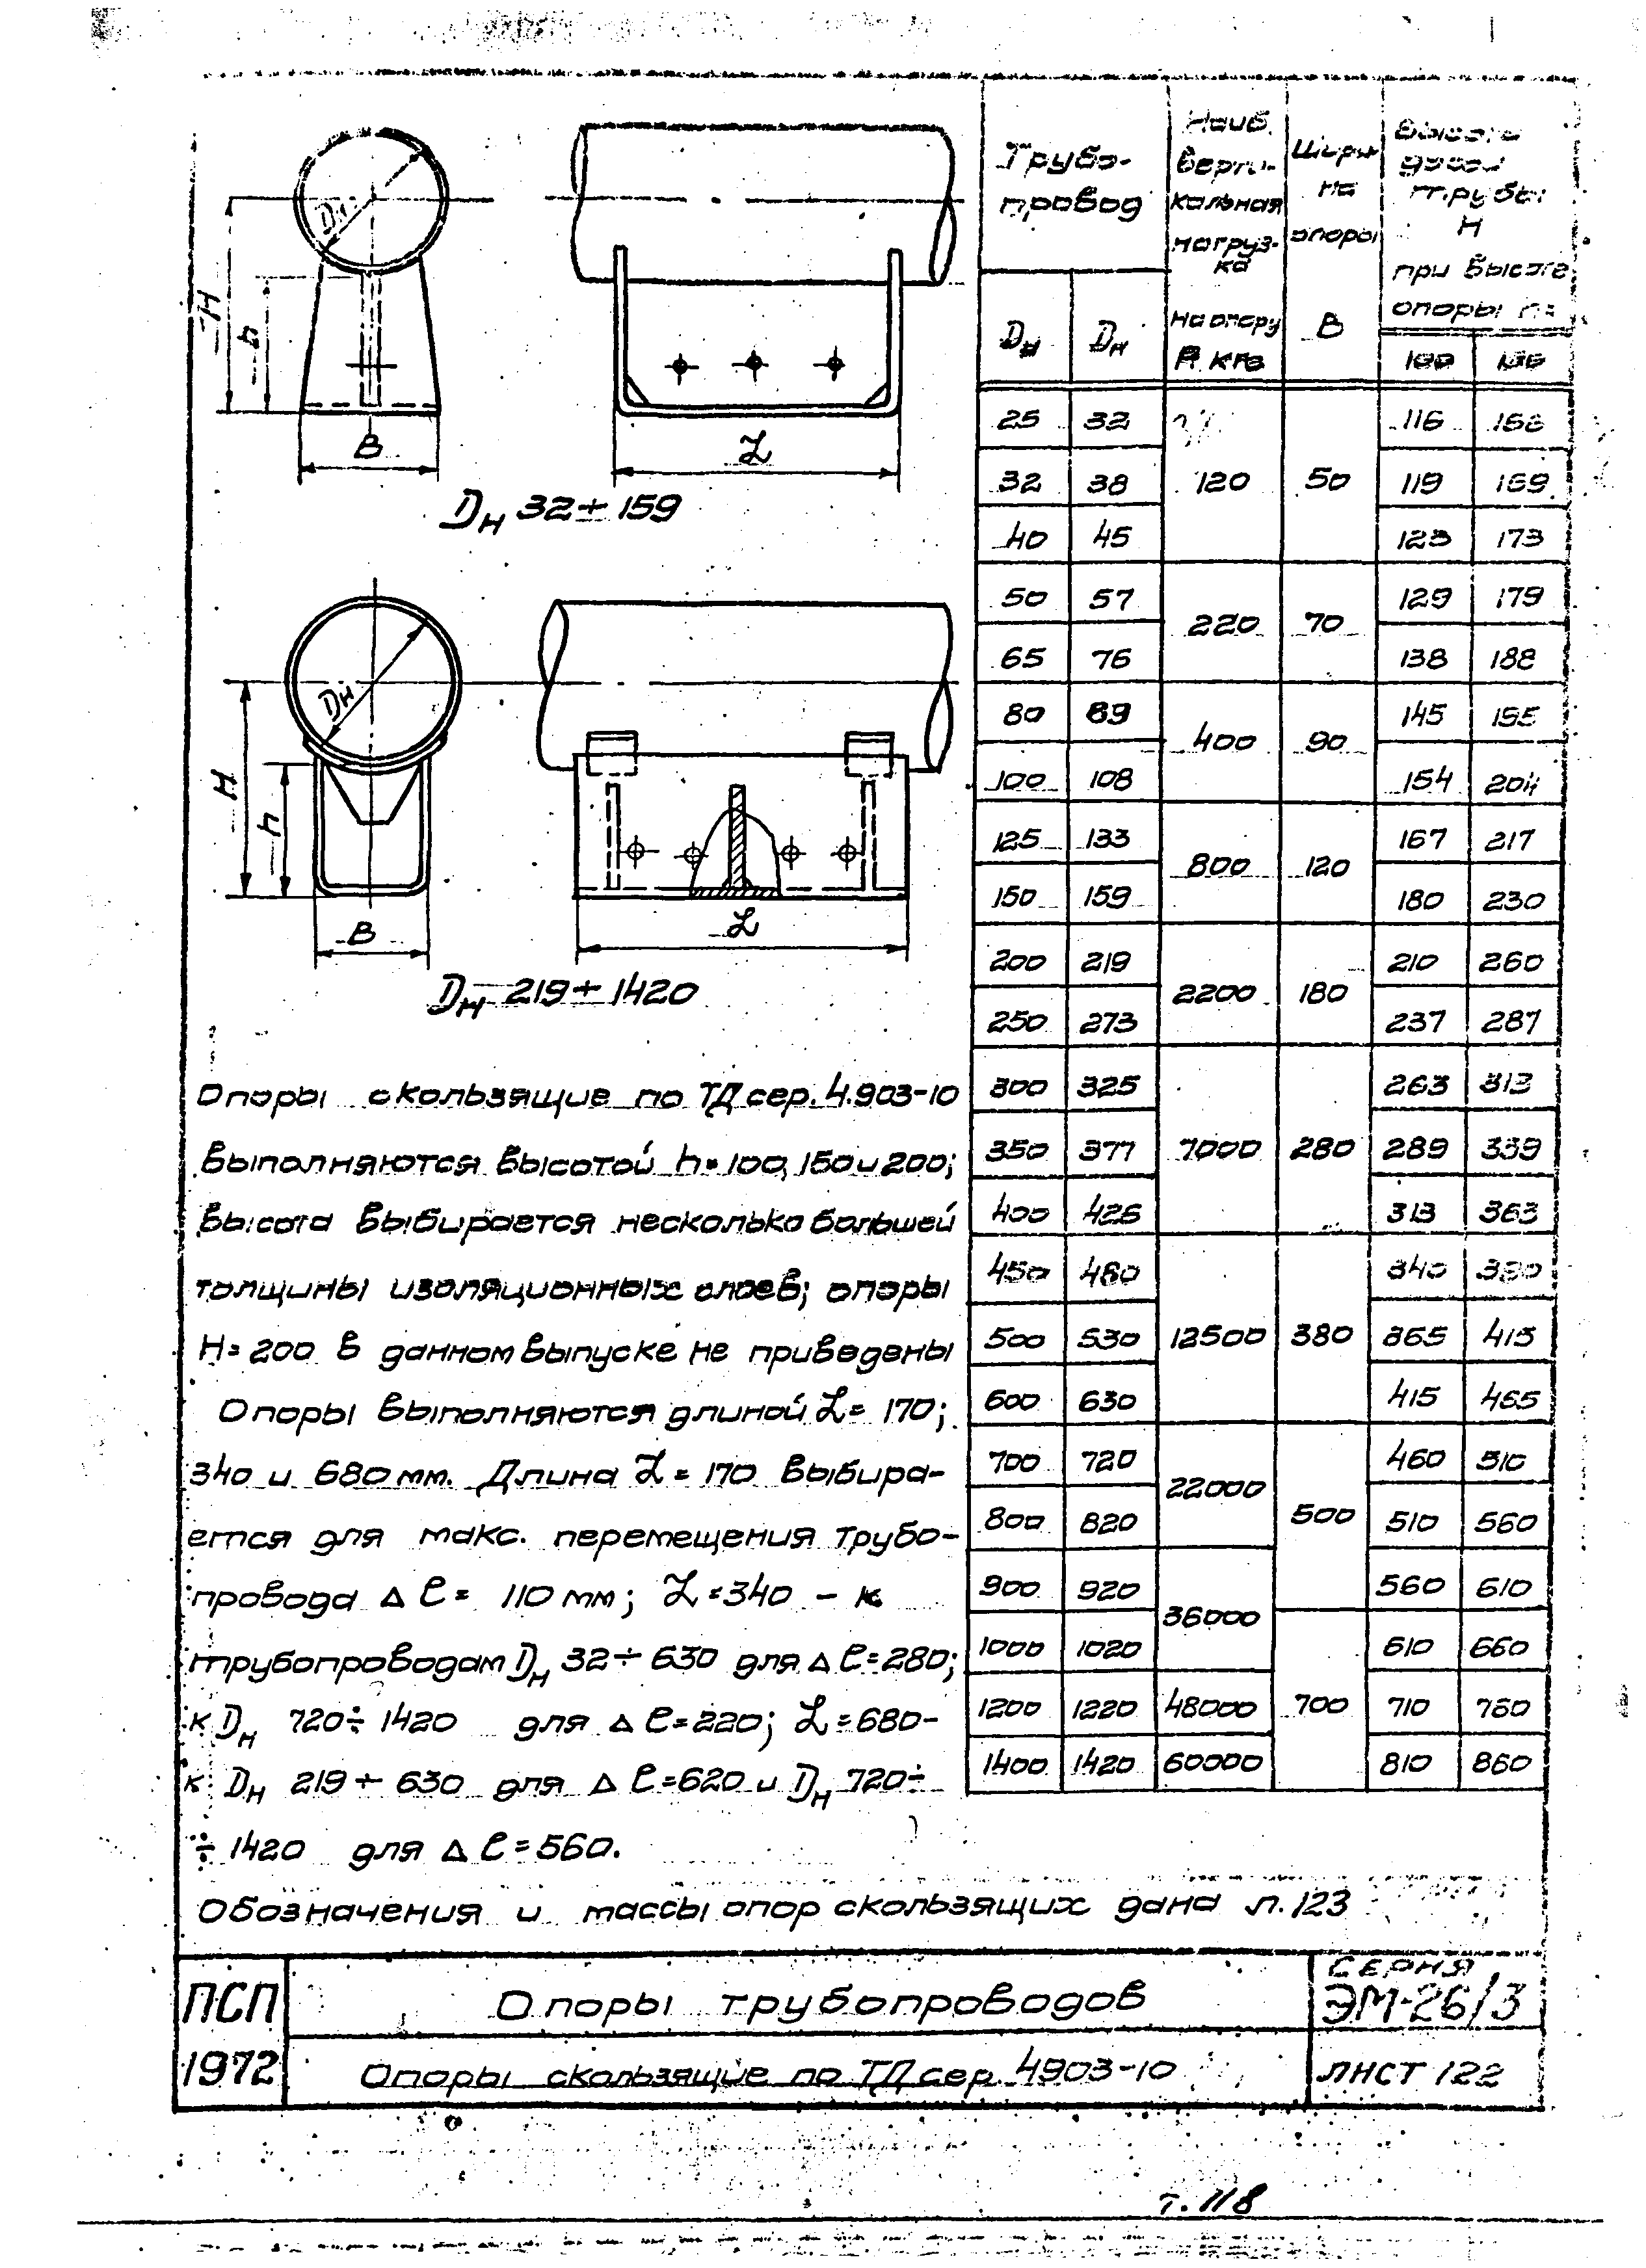 Dн
H
h
B
L
Dн 32 ÷ 159
Dн
H
h
B
L
Dн 219 ÷ 1420
Опоры скользящие по ТД сер. 4.903-10
выполняются высотой h = 100, 150 и 200;
высота выбирается несколько большей
толщины изоляционных слоев; опоры
H = 200 в данном выпуске не приведены
Опоры выполняются длиной L = 170;
340 и 680 мм. Длина L = 170 выбира-
ется для макс. перемещения трубо-
провода Δ ℓ = 110 мм; L = 340 - к
трубопроводам Dн 32 ÷ 630 для Δ ℓ = 280;
к Dн 720 ÷ 1420 для Δ ℓ = 220; L = 680-
к Dн 219 ÷ 630 для Δ ℓ = 620 и Dн 720 ÷
÷ 1420 для Δ ℓ = 560.
Обозначения и массы опор скользящих дана л. 123
Трубо-
провод
Наиб.
верти-
кальная
нагруз-
ка
на опору
Р кгс
Шири-
на
опоры
B
Высота
трубы
H
при высоте
опоры h=
Dн Dн 100 150
25 32 116 166
32 38 120 50 119 169
40 45 123 173
50 57 129 179
220 70
65 76 138 188
80 89 145 195
400 90
100 108 154 204
125 133 167 217
800 120
150 159 180 230
200 219 210 260
2200 180
250 273 237 287
300 325 263 313
350 377 7000 280 289 339
400 426 313 363
450 480 340 390
500 530 12500 380 365 415
600 630 415 465
700 720 460 510
22000
800 820 500 510 560
900 920 560 610
36000
1000 1020 610 660
1200 1220 48000 700 710 760
1400 1420 60000 810 860
ПСП
1972
Опоры трубопроводов
Опоры скользящие по ТД сер. 4903-10
СЕРИЯ
ЭМ-26/3
ЛИСТ 122
т. 118